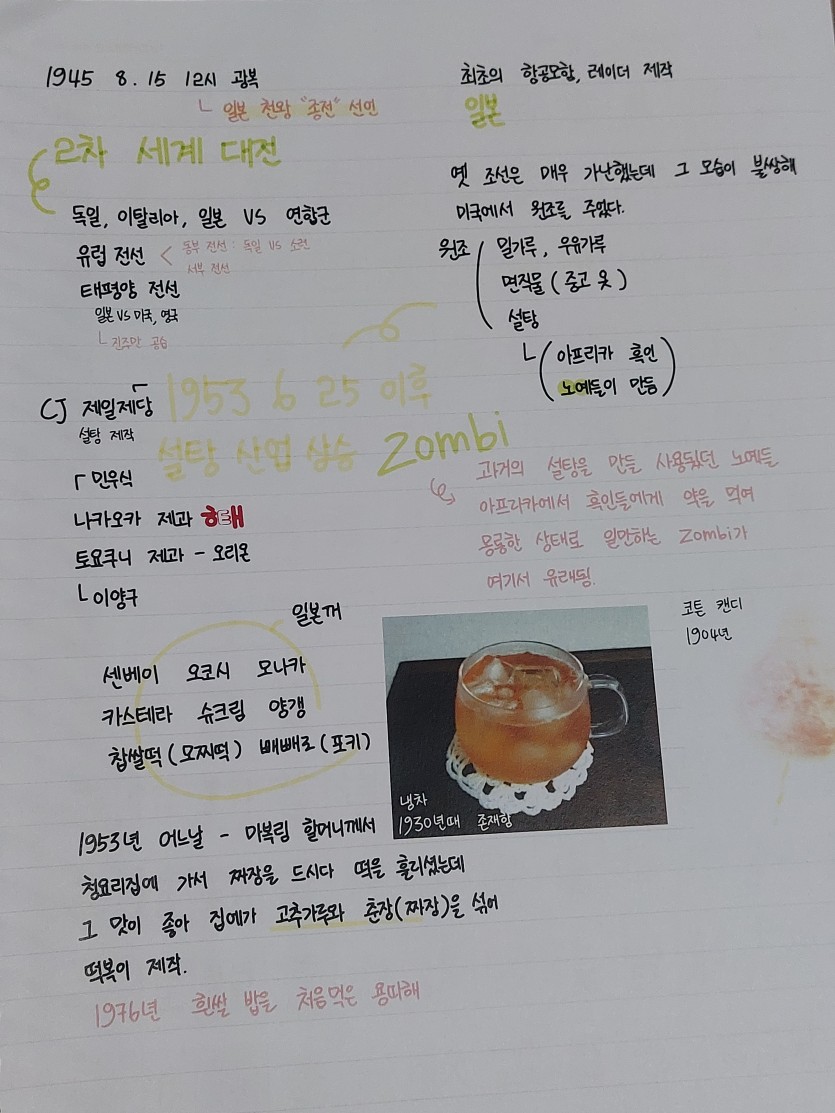 1945 8. 15 12시 광복
└ 일본 천왕 "종전" 선언
2차 세계 대전
독일, 이탈리아, 일본 VS 연합군
유럽 전선 < 동부 전선 : 독일 VS 소련
서부 전선
태평양 전선
일본 VS 미국, 영국
└ 진주만 공습
최초의 항공모함, 레이더 제작
일본
옛 조선은 매우 가난했는데 그 모습이 불쌍해
미국에서 원조를 주었다.
원조 ( 밀가루, 우유가루
면직물 ( 중고 옷 )
설탕
└ ( 아프리카 흑인
노예들이 만듬 )
1953 6 25 이후
설탕 산업 상승
CJ 제일제당
설탕 제작
┌ 민우식
나카오카 제과 해태
토요쿠니 제과 - 오리온
└ 이양구
Zombi
과거의 설탕을 만들 사용됬던 노예들
아프리카에서 흑인들에게 약을 먹여
몽롱한 상태로 일만하는 Zombi가
여기서 유래됨.
일본꺼
센베이 오코시 모나카
카스테라 슈크림 양갱
찹쌀떡 (모찌떡) 빼빼로 (포키)
코튼 캔디
1904년
냉차
1930년때 존재함
1953년 어느날 - 마복림 할머니께서
청요리집에 가서 짜장을 드시다 떡을 흘리셨는데
그 맛이 좋아 집에가 고추가루와 춘장(짜장)을 섞어
떡볶이 제작.
1976년 흰쌀 밥을 처음먹은 용따해